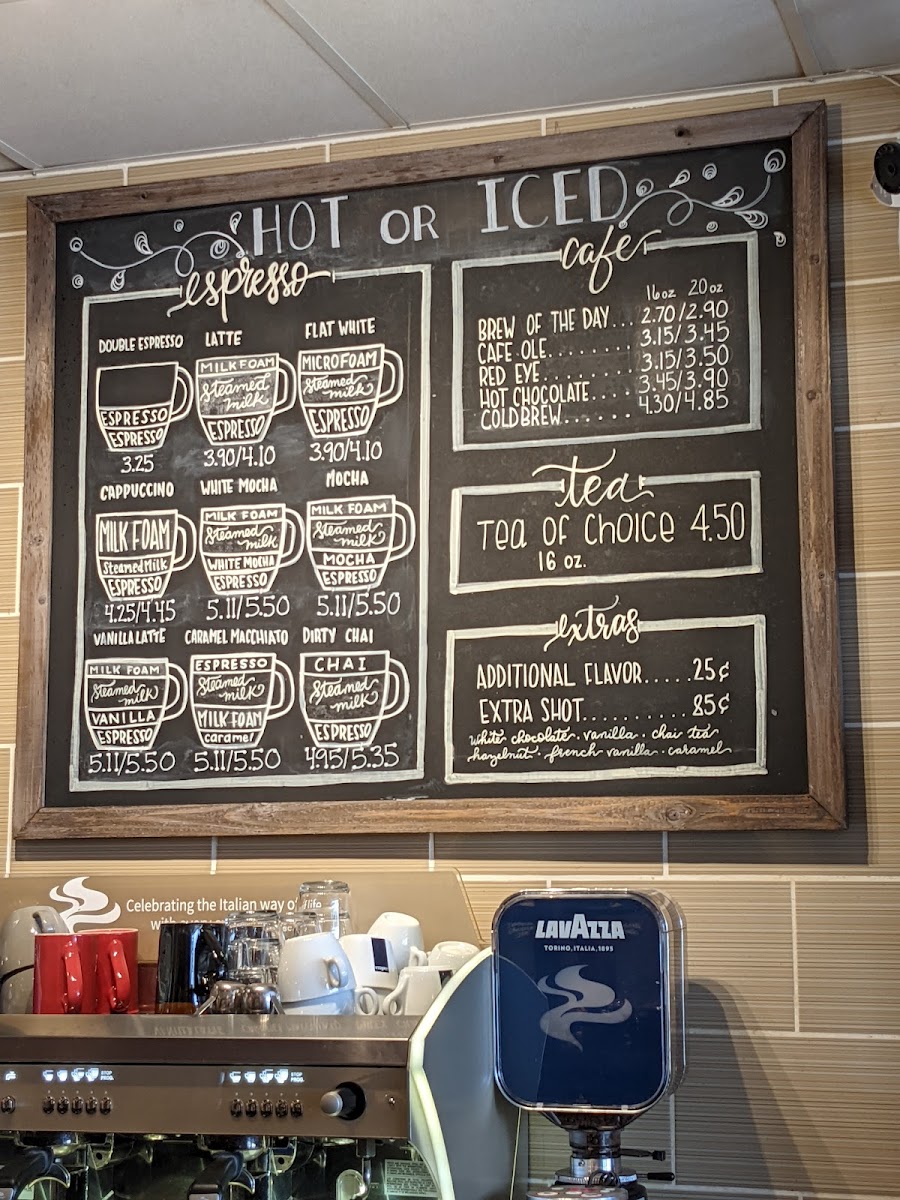 HOT OR ICED
espresso
DOUBLE ESPRESSO
ESPRESSO
ESPRESSO
3.25
LATTE
MILK FOAM
Steamed
milk
ESPRESSO
3.90/4.10
FLAT WHITE
MICROFOAM
Steamed
milk
ESPRESSO
3.90/4.10
CAPPUCCINO
MILK FOAM
Steamed Milk
ESPRESSO
4.25/4.45
WHITE MOCHA
MILK FOAM
Steamed
milk
WHITE MOCHA
ESPRESSO
5.11/5.50
MOCHA
MILK FOAM
Steamed
milk
MOCHA
ESPRESSO
5.11/5.50
VANILLA LATTE
MILK FOAM
Steamed
milk
VANILLA
ESPRESSO
5.11/5.50
CARAMEL MACCHIATO
ESPRESSO
Steamed
milk
MILK FOAM
caramel
5.11/5.50
DIRTY CHAI
CHAI
Steamed
milk
ESPRESSO
4.95/5.35
cafe
16oz 20oz
BREW OF THE DAY... 2.70/2.90
CAFE OLE........ 3.15/3.45
RED EYE......... 3.15/3.50
HOT CHOCOLATE.... 3.45/3.90
COLDBREW...... 4.30/4.85
tea
Tea of Choice 4.50
16 oz.
extras
ADDITIONAL FLAVOR.....25¢
EXTRA SHOT.........85¢
white chocolate · vanilla · chai tea
hazelnut · french vanilla · caramel
Celebrating the Italian way of life
with every
LAVAZZA
TORINO, ITALIA, 1895
STOP
PROG.
STOP
PROG.